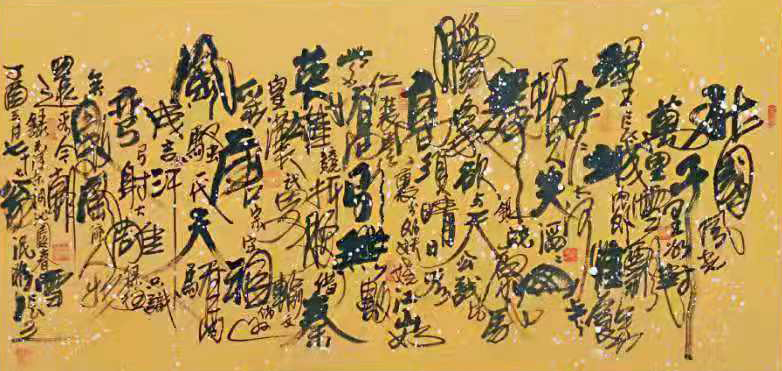 北國風光
千里冰封
萬里雪飄
望長城內外惟餘
莽莽大河
頓失滔滔山
舞銀蛇原馳
臘象欲與天公試比
高須晴日看
紅裝素裹分外妖嬈江山
如此多嬌引無數
英雄競折腰惜秦
皇漢武略輸文
采唐宗宋祖稍遜
風騷一代天驕
成吉思汗只識
彎弓射大雕俱往
矣數風流人物
還看今朝
錄毛澤東沁園春雪
丁酉